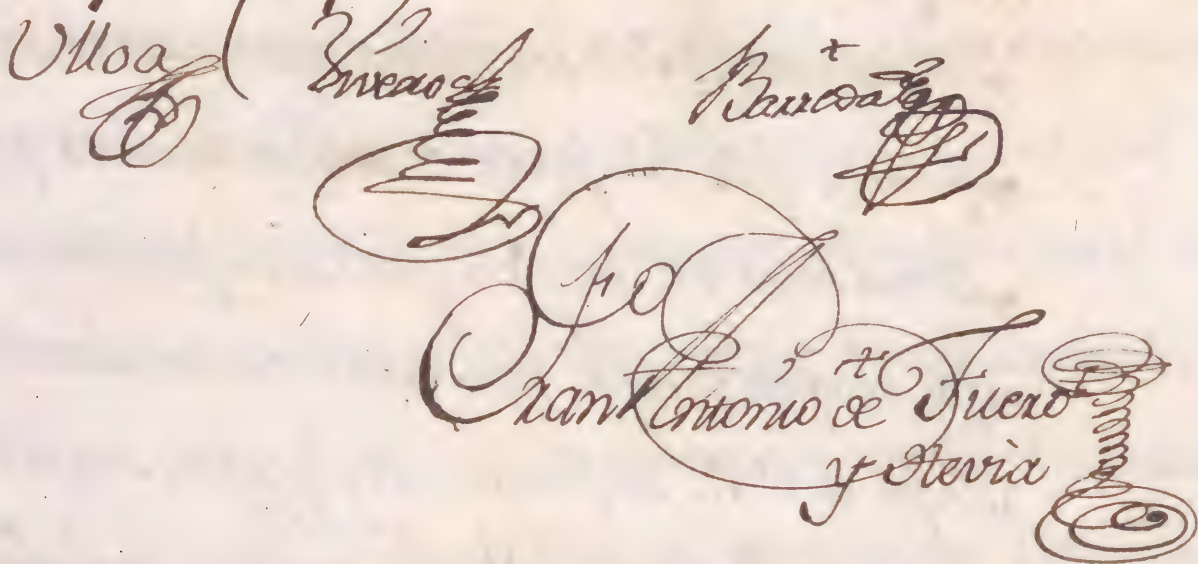 Ulloa Vivero Barreda
Fran.co Antonio de Fuero
y Stevia